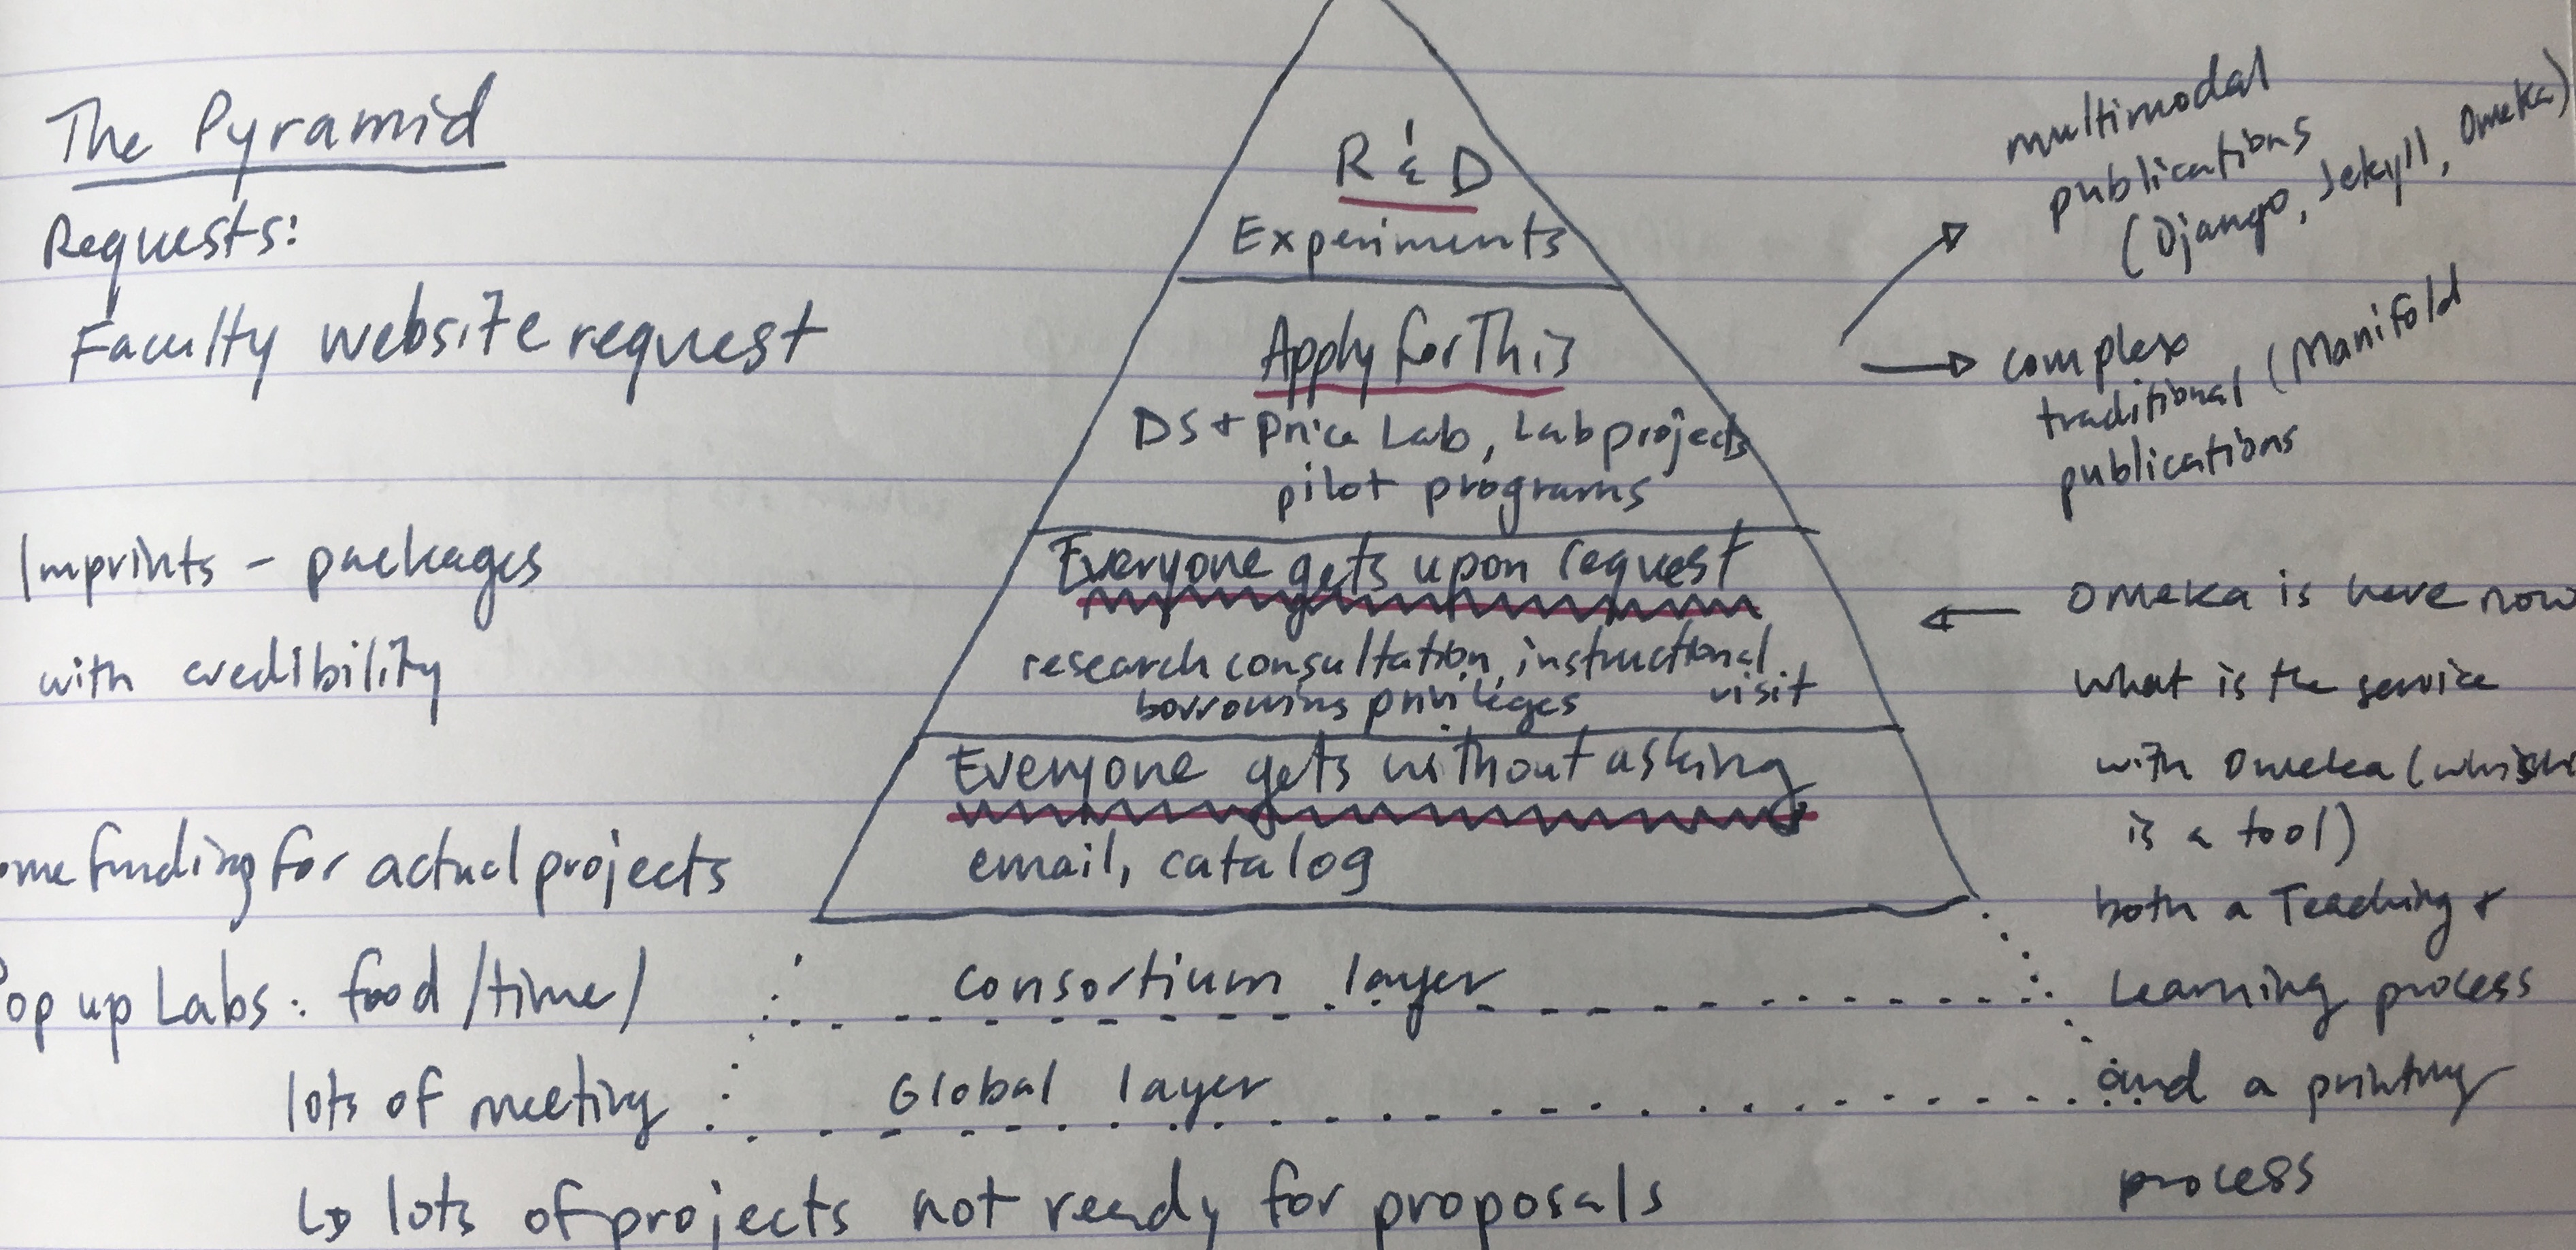 The Pyramid
Requests:
Faculty website request
Imprints - packages
with credibility
funding for actual projects
Pop up Labs: food/time/
lots of meeting
↳ lots of projects not ready for proposals
R & D
Experiments
Apply for This
DS + Price Lab, Lab projects
pilot programs
Everyone gets upon request
research consultation, instructional
visit
borrowing privileges
Everyone gets without asking
email, catalog
consortium layer
Global layer
multimodal
publications
(Django, Jekyll, Omeka)
complex
traditional (Manifold
publications
← Omeka is here now
what is the service
with Omeka (which
is a tool)
both a Teaching +
Learning process
and a printing
process